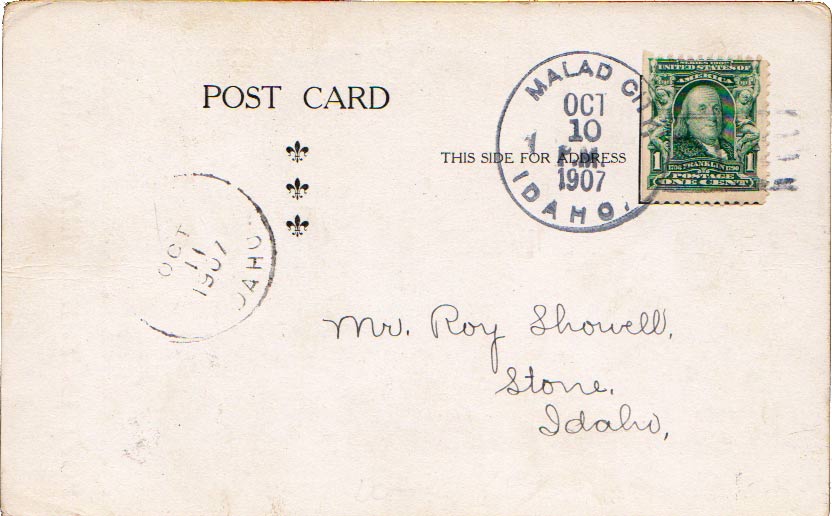 POST CARD
THIS SIDE FOR ADDRESS
MALAD CITY
OCT
10
P.M.
1907
IDAHO.
SERIES 1902
UNITED STATES OF
AMERICA
1 1
1706 FRANKLIN 1790
POSTAGE
ONE CENT
OCT
11
1907
IDAHO
Mr. Roy Showell,
Stone,
Idaho,